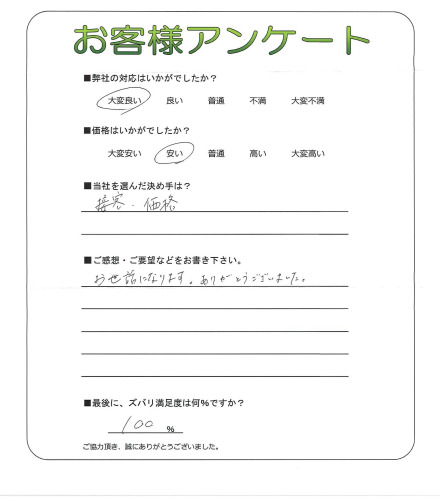 お客様アンケート
■弊社の対応はいかがでしたか?
大変良い 良い 普通 不満 大変不満
■価格はいかがでしたか?
大変安い 安い 普通 高い 大変高い
■当社を選んだ決め手は?
接客・価格
■ご感想・ご要望などをお書き下さい。
お世話になります。ありがとうございました。
■最後に、ズバリ満足度は何%ですか?
100 %
ご協力頂き、誠にありがとうございました。